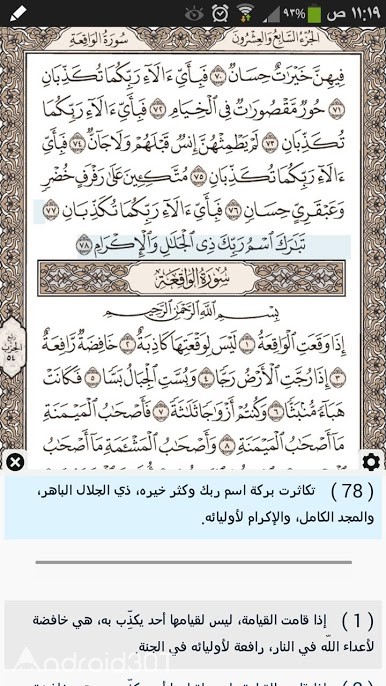 ١١:١٩ ص
٩٣%
الجزء السابع والعشرون
سورة الواقعة
فِيهِنَّ خَيْرَٰتٌ حِسَانٌ ٧٠ فَبِأَيِّ ءَالَآءِ رَبِّكُمَا تُكَذِّبَانِ
٧١ حُورٌ مَّقْصُورَٰتٌ فِي ٱلْخِيَامِ ٧٢ فَبِأَيِّ ءَالَآءِ رَبِّكُمَا
تُكَذِّبَانِ ٧٣ لَمْ يَطْمِثْهُنَّ إِنسٌ قَبْلَهُمْ وَلَا جَآنٌّ ٧٤ فَبِأَيِّ
ءَالَآءِ رَبِّكُمَا تُكَذِّبَانِ ٧٥ مُتَّكِـِٔينَ عَلَىٰ رَفْرَفٍ خُضْرٍ
وَعَبْقَرِيٍّ حِسَانٍ ٧٦ فَبِأَيِّ ءَالَآءِ رَبِّكُمَا تُكَذِّبَانِ ٧٧
تَبَٰرَكَ ٱسْمُ رَبِّكَ ذِي ٱلْجَلَٰلِ وَٱلْإِكْرَامِ ٧٨
سورة الواقعة
بِسْمِ ٱللَّهِ ٱلرَّحْمَٰنِ ٱلرَّحِيمِ
إِذَا وَقَعَتِ ٱلْوَاقِعَةُ ١ لَيْسَ لِوَقْعَتِهَا كَاذِبَةٌ ٢ خَافِضَةٌ رَّافِعَةٌ
٣ إِذَا رُجَّتِ ٱلْأَرْضُ رَجًّا ٤ وَبُسَّتِ ٱلْجِبَالُ بَسًّا ٥ فَكَانَتْ
هَبَآءً مُّنۢبَثًّا ٦ وَكُنتُمْ أَزْوَٰجًا ثَلَٰثَةً ٧ فَأَصْحَٰبُ ٱلْمَيْمَنَةِ
مَآ أَصْحَٰبُ ٱلْمَيْمَنَةِ ٨ وَأَصْحَٰبُ ٱلْمَشْـَٔمَةِ مَآ أَصْحَٰبُ
الحزب
٥٤
( 78 ) تكاثرت بركة اسم ربك وكثر خيره، ذي الجلال الباهر،
والمجد الكامل، والإكرام لأوليائه.
( 1 ) إذا قامت القيامة، ليس لقيامها أحد يكذِّب به، هي خافضة
لأعداء اللّه في النار، رافعة لأوليائه في الجنة.
Android301